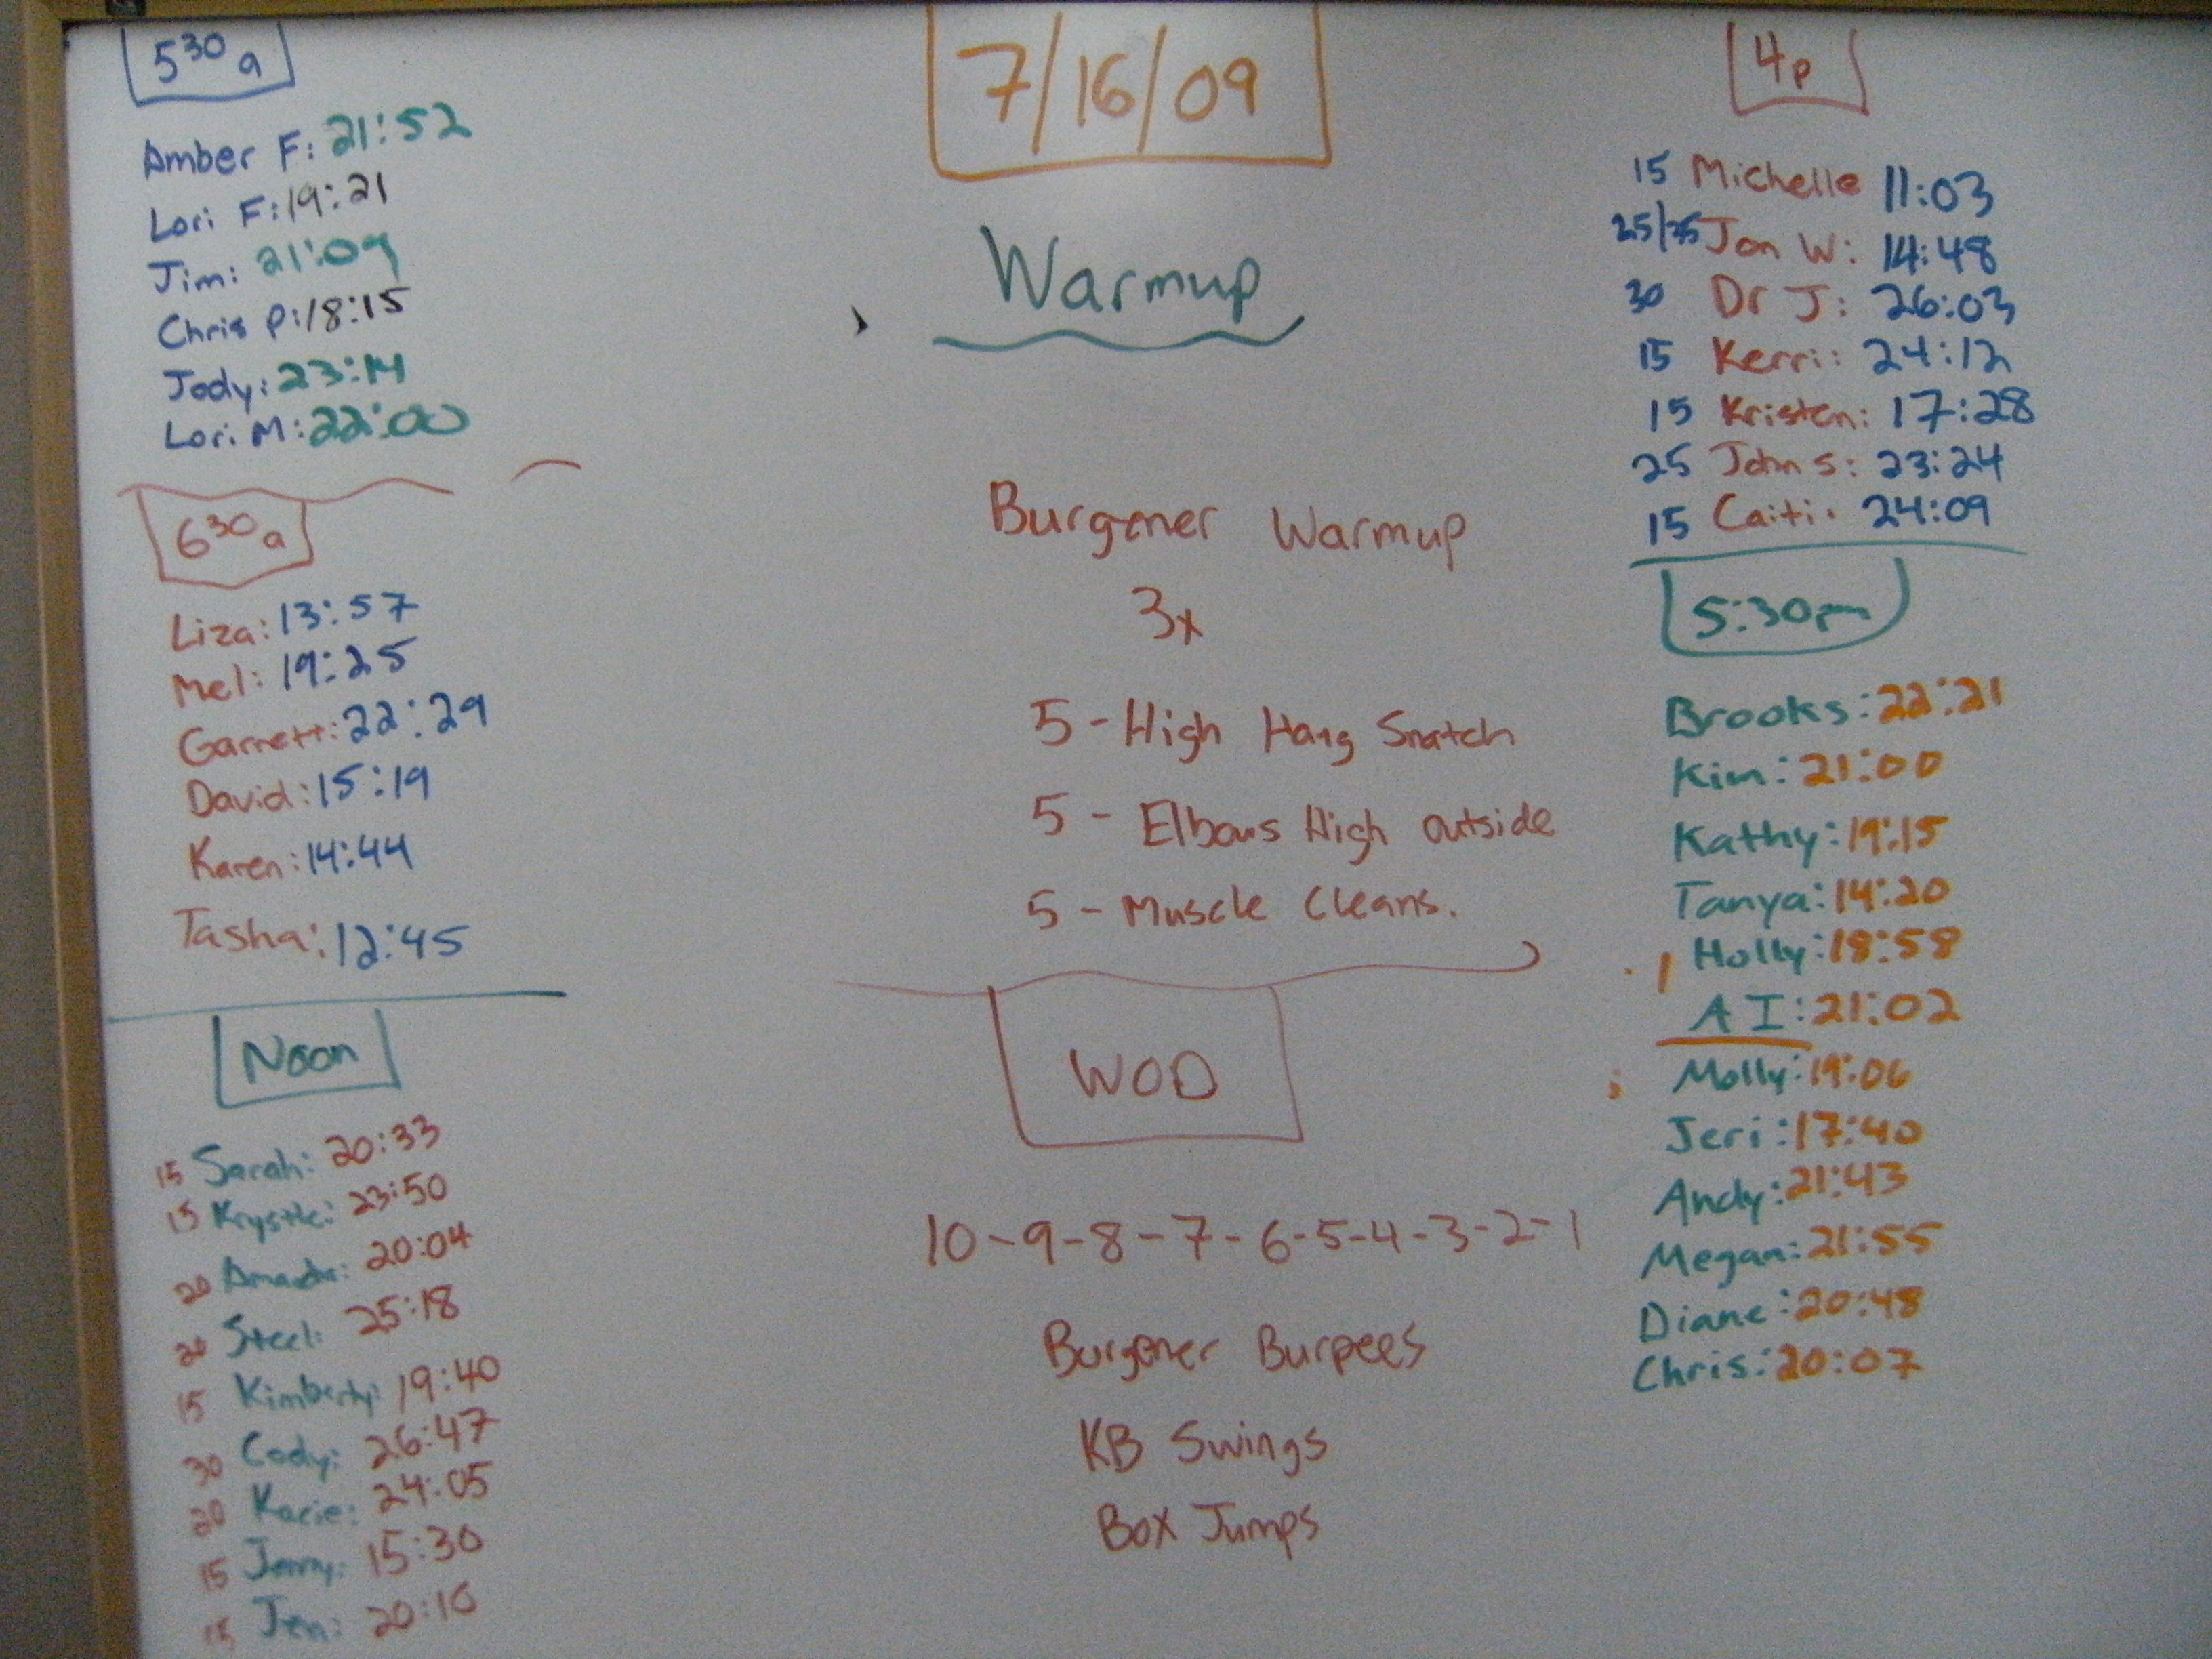 5 30 a
Amber F: 21:52
Lori F: 19:21
Jim: 21:09
Chris P: 18:15
Jody: 23:14
Lori M: 22:00
6 30 a
Liza: 13:57
Mel: 19:25
Garrett: 22:29
David: 15:19
Karen: 14:44
Tasha: 12:45
Noon
15 Sarah: 20:33
15 Krystle: 23:50
20 Amanda: 20:04
Steel: 25:18
15 Kimberly: 19:40
30 Cody: 26:47
20 Kacie: 24:05
15 15:30
15 Jen: 20:10
7/16/09
Warmup
Burgener Warmup
3x
5 - High Hang Snatch
5 - Elbows High outside
5 - Muscle Cleans.
WOD
10-9-8-7-6-5-4-3-2-1
Burgener Burpees
KB Swings
Box Jumps
4p
15 Michelle 11:03
25/35 Jon W: 14:48
30 Dr J: 26:03
15 Kerri: 24:12
15 Kristen: 17:28
25 John S: 23:24
15 Caiti: 24:09
5:30pm
Brooks: 22:21
Kim: 21:00
Kathy: 19:15
Tanya: 14:20
Holly: 18:58
A I: 21:02
Molly: 19:06
Jeri: 17:40
Andy: 21:43
Megan: 21:55
Diane: 20:48
Chris: 20:07